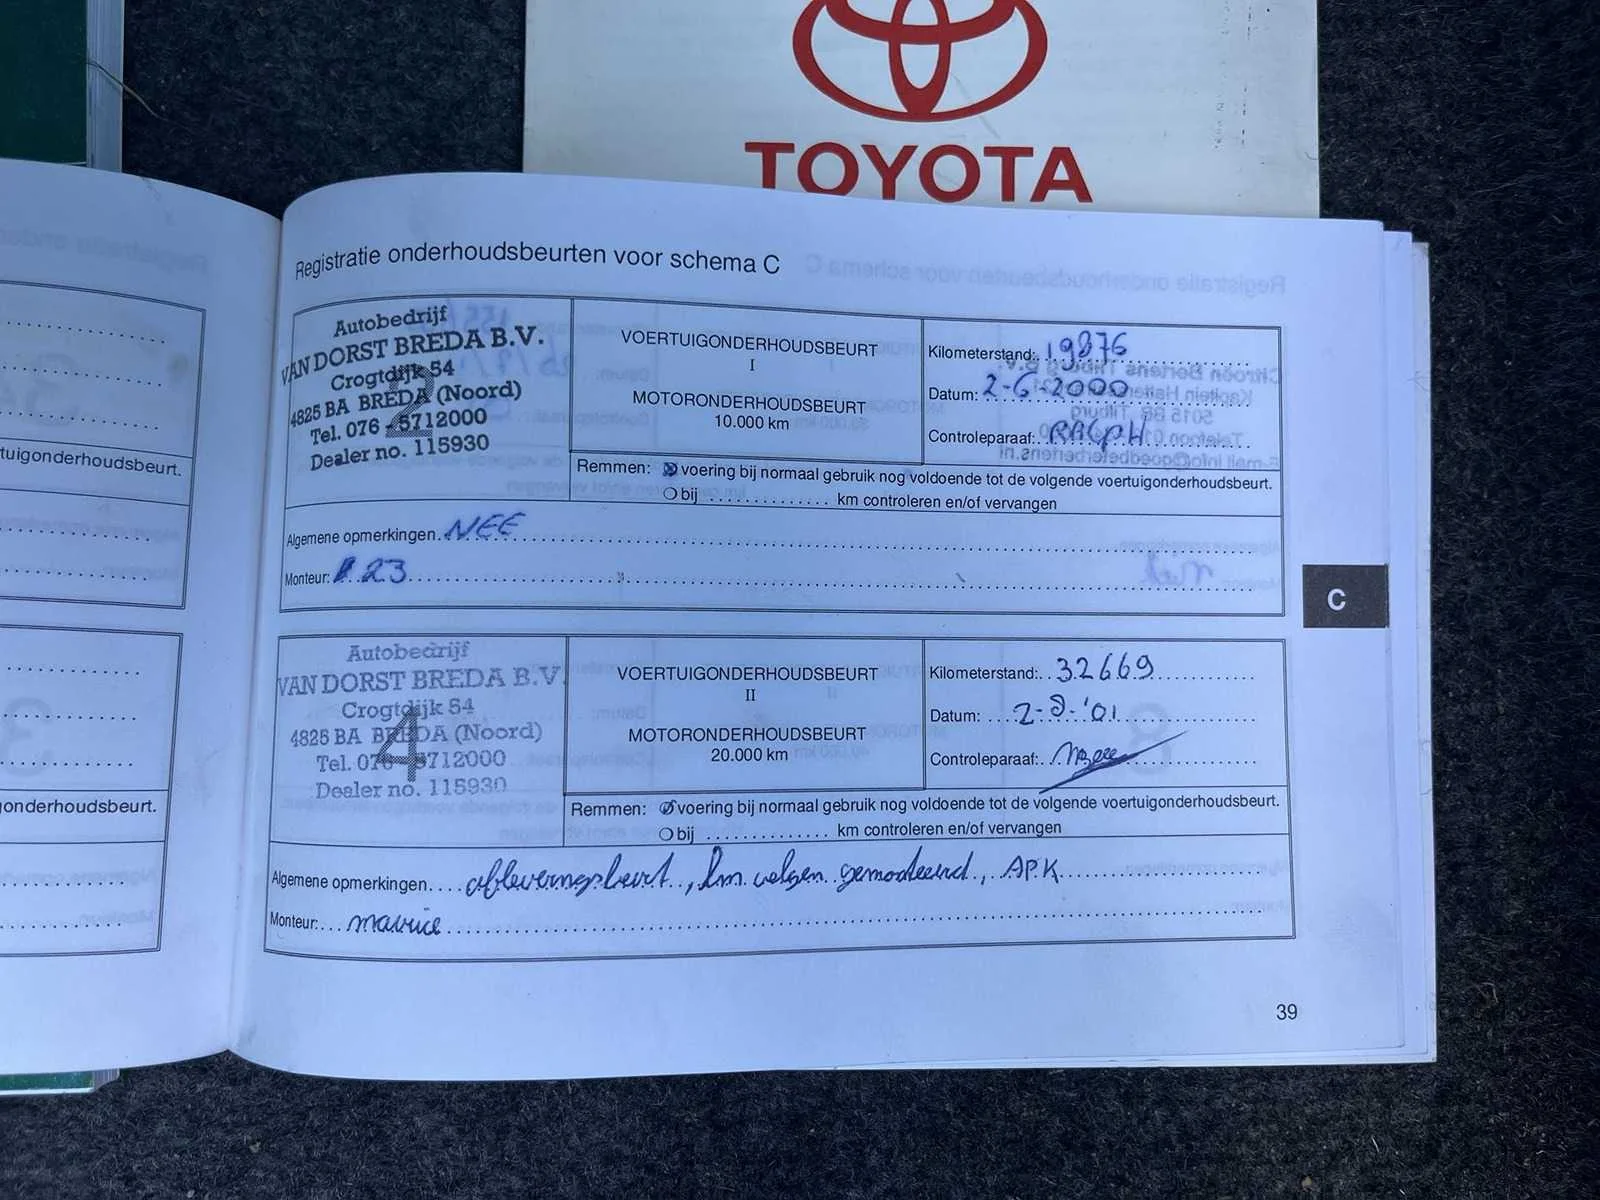 TOYOTA
Registratie onderhoudsbeurten voor schema C
Autobedrijf
VAN DORST BREDA B.V.
Crogtdijk 54
4825 BA BREDA (Noord)
Tel. 076 - 5712000
Dealer no. 115930
2
VOERTUIGONDERHOUDSBEURT
I
MOTORONDERHOUDSBEURT
10.000 km
Kilometerstand: 19876
Datum: 2-6-2000
Controleparaaf: RALPH
Remmen: voering bij normaal gebruik nog voldoende tot de volgende voertuigonderhoudsbeurt.
bij ............. km controleren en/of vervangen
Algemene opmerkingen. NEE
Monteur: 23
C
Autobedrijf
VAN DORST BREDA B.V.
Crogtdijk 54
4825 BA BREDA (Noord)
Tel. 076 - 5712000
Dealer no. 115930
4
VOERTUIGONDERHOUDSBEURT
II
MOTORONDERHOUDSBEURT
20.000 km
Kilometerstand: 32669
Datum: 2-8-'01
Controleparaaf:
Remmen: voering bij normaal gebruik nog voldoende tot de volgende voertuigonderhoudsbeurt.
bij ............. km controleren en/of vervangen
Algemene opmerkingen.... afleveringsbeurt, lm velgen gemonteerd, APK
Monteur:... maurice
39
tuigonderhoudsbeurt.
gonderhoudsbeurt.